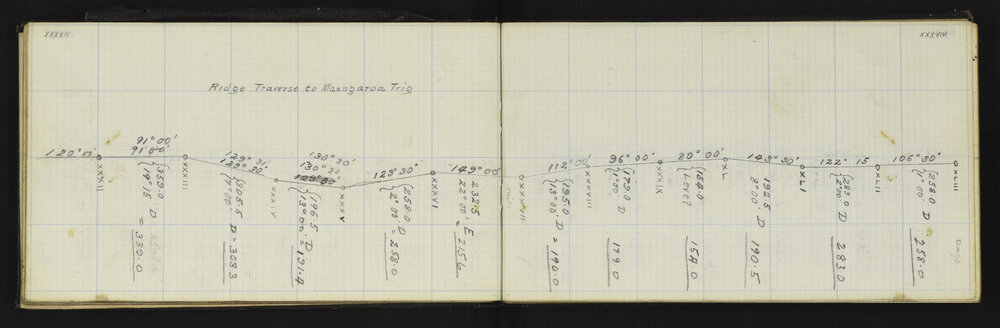 XXXVII
XXXVIII
Ridge Traverse to Maungaroa Trig
120° 11'
91° 00'
91° 00'
129° 30'
129° 30'
130° 30'
130° 30'
123° 30'
149° 00'
112° 00'
96° 00'
80° 00'
143° 30'
122° 15
106° 30'
XXXII
XXXIII
XXXIV
XXXV
XXXVI
XXXVIII
XXXIX
XL
XLI
XLII
XLIII
359.0 D
19° 15 = 339.0
305.5 D = 303.3
7° 00'
196.5 D
13° 00' = 191.4
258.0 D
2° 00' = 258.0
232.5
22° 00' E = 215.6
195.0 D
13° 00' = 190.0
179.0 D
1° 00' 179.0
154.0
Level 154.0
192.5 D
8° 00' 190.5
283.0 D
283.0
258.0 D
1° 00' 258.0
Page